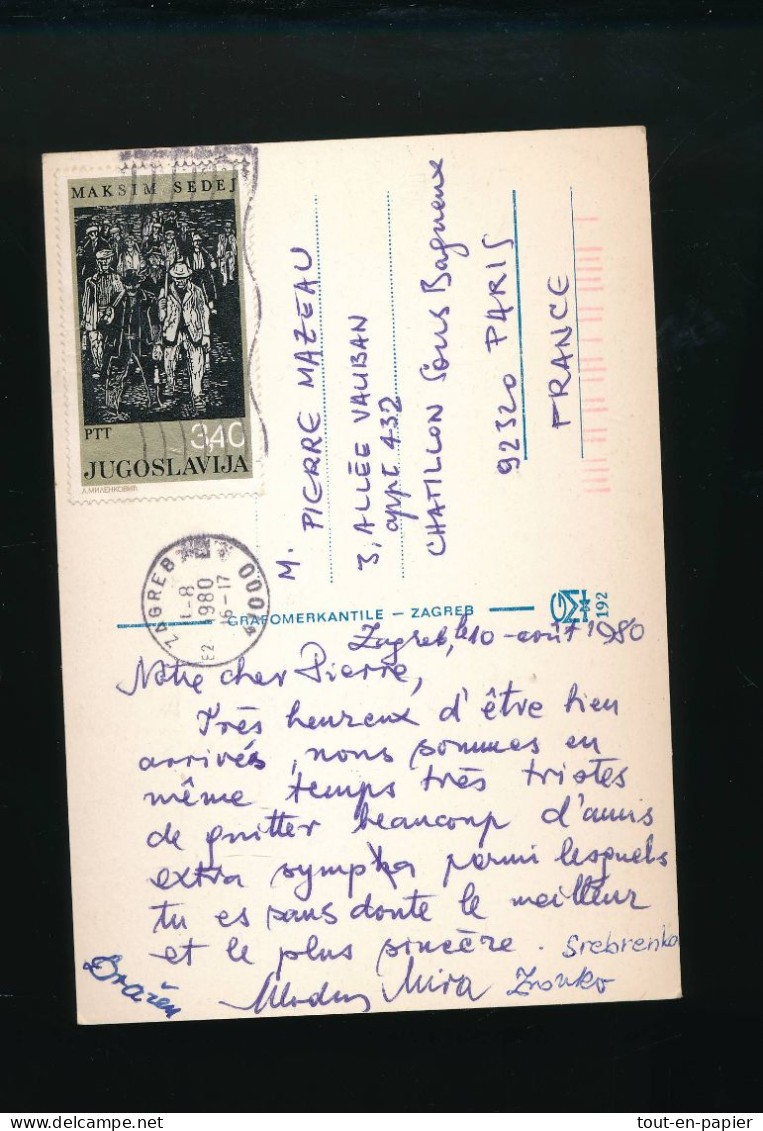 MAKSIM SEDEJ
PTT
3,40
JUGOSLAVIJA
Л.МИЛЕНКОВИЋ
ZAGREB
1980
16-17
M. PIERRE MAZEAU
3, ALLÉE VAUBAN
appt 432
CHATILLON Sous Bagneux
92320 PARIS
FRANCE
GRAFOMERKANTILE – ZAGREB
192
Zagreb, le 10 août 1980
Notre cher Pierre,
Très heureux d'être bien
arrivés, nous sommes en
même temps très tristes
de quitter beaucoup d'amis
extra sympha parmi lesquels
tu es sans doute le meilleur
et le plus sincère. Srebrenka
Dražen
Mira Zvonko
tout-en-papier / delcampe.net